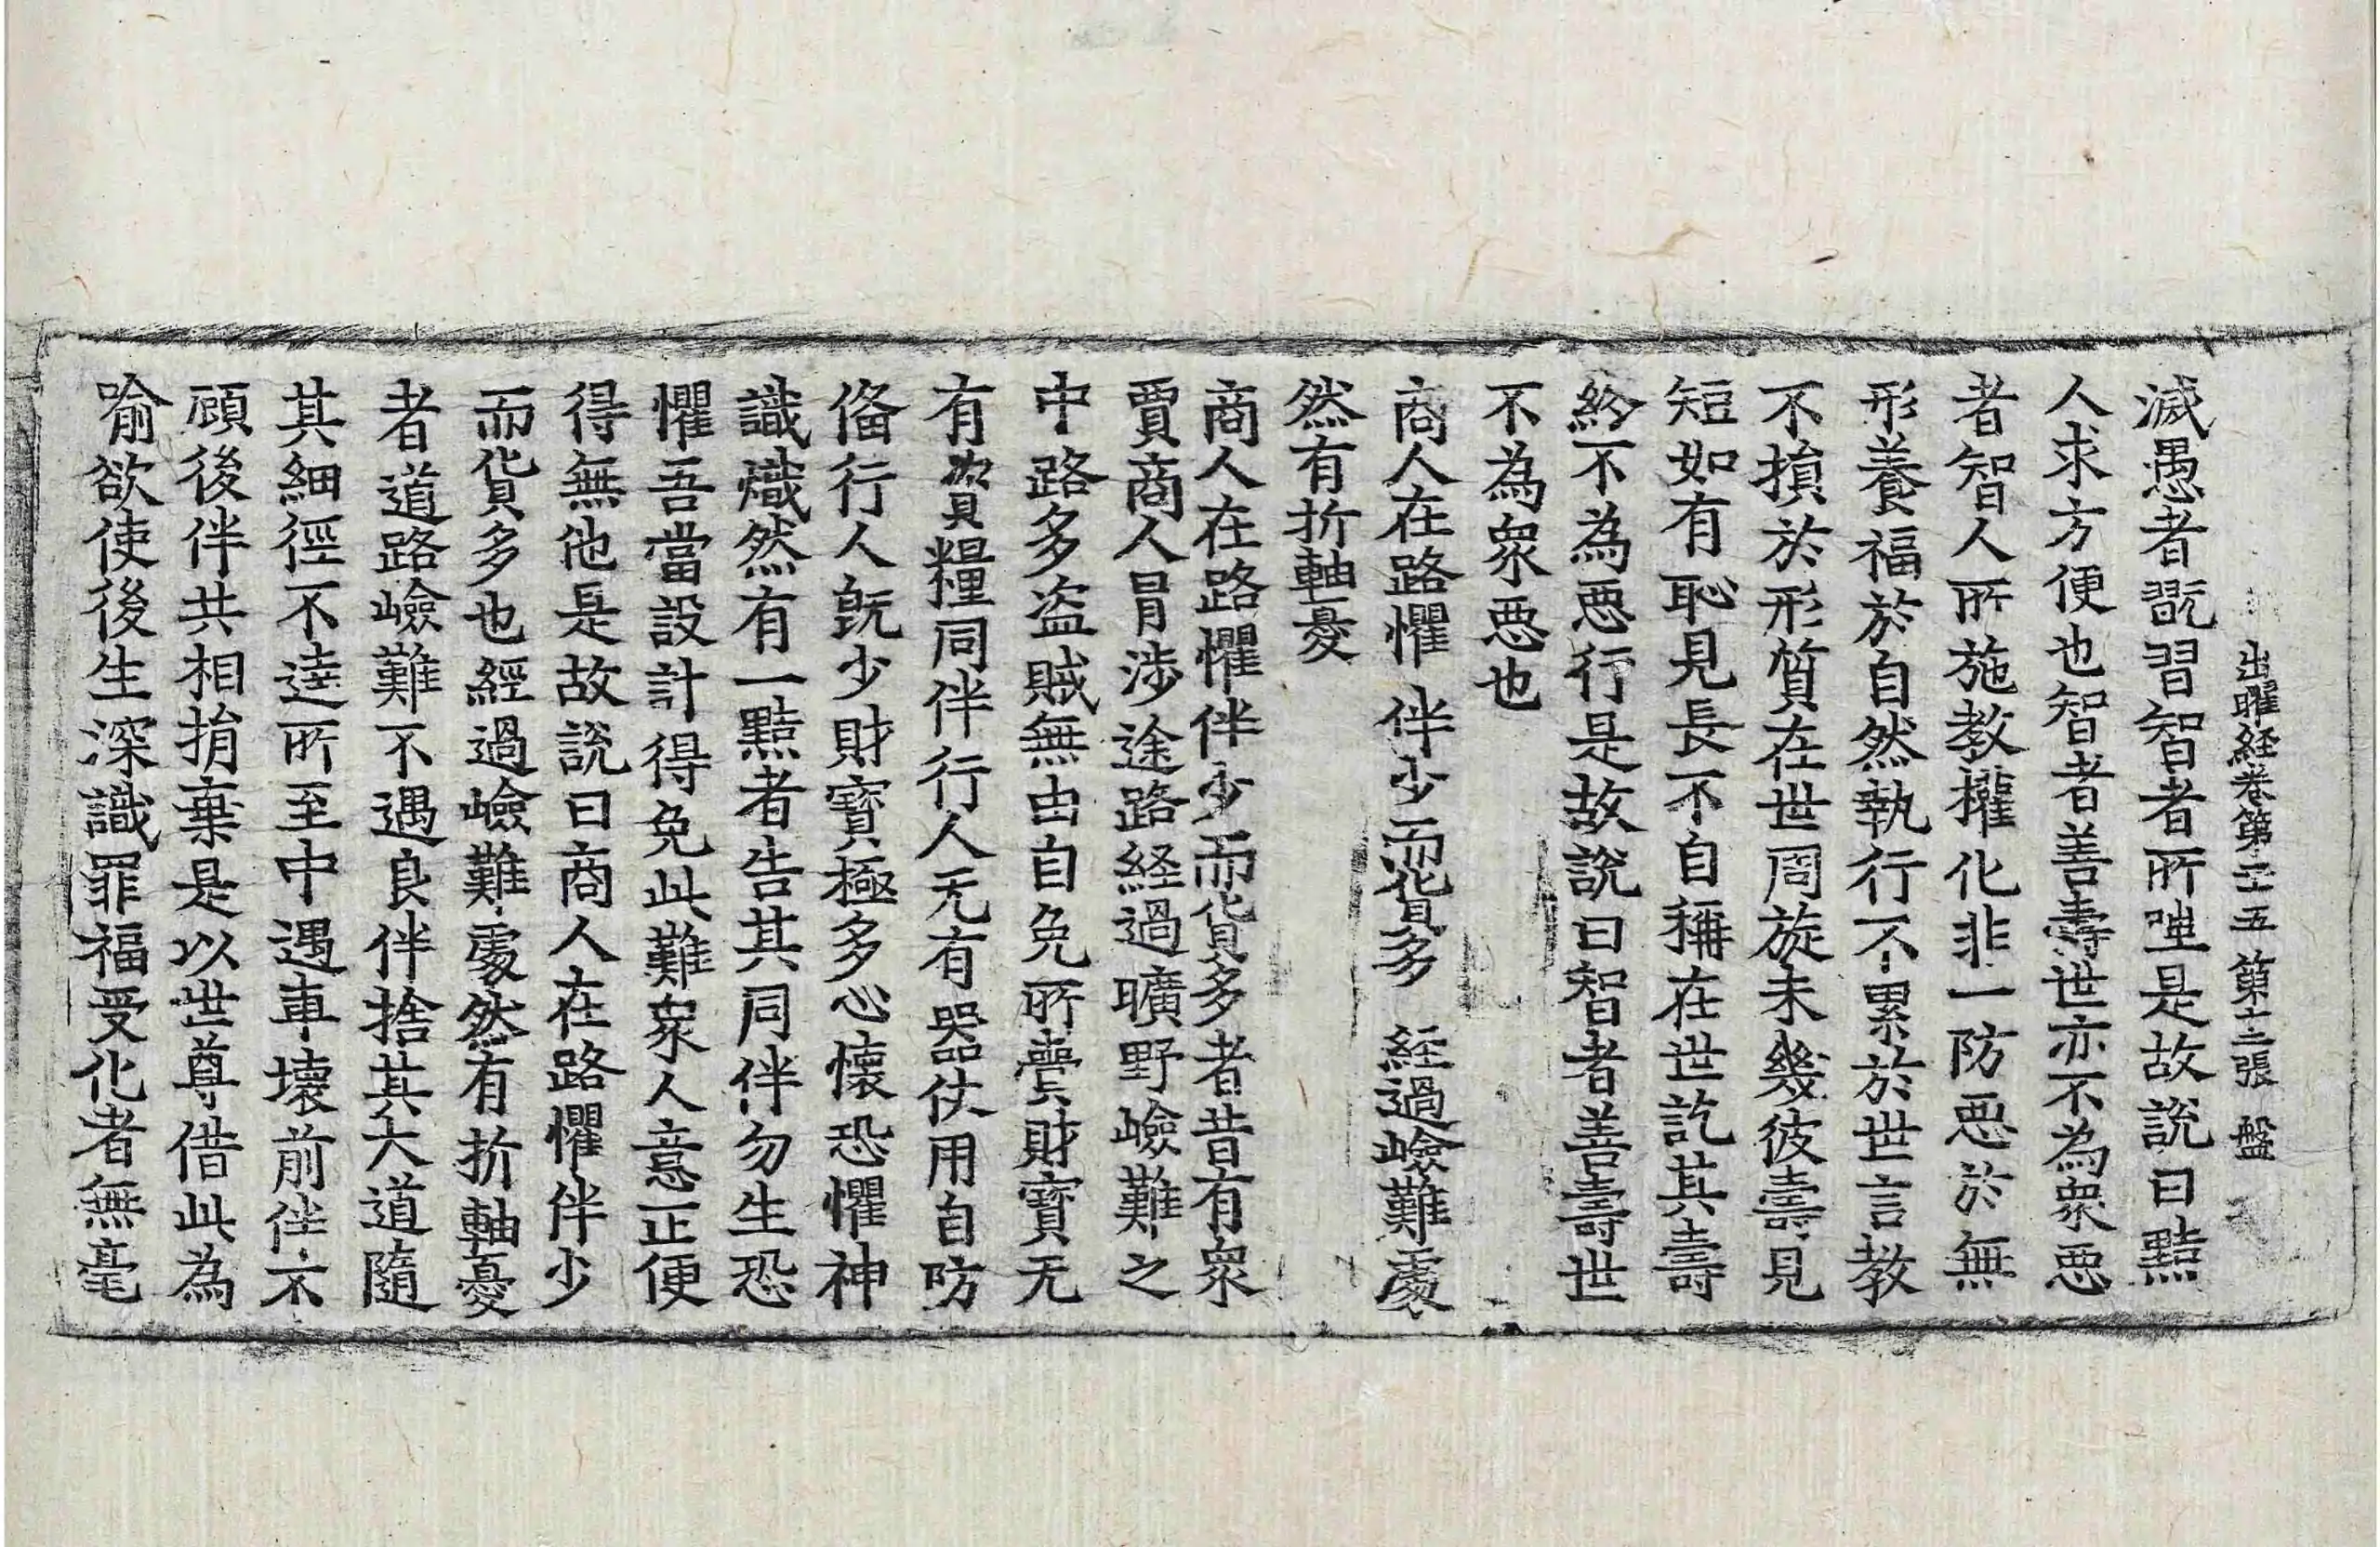 出曜経卷第二十五 第十二張 盤
滅愚者翫習智者所嗤是故說曰黠
人求方便也智者善壽世亦不為衆惡
者智人所施教權化非一防惡於無
形養福於自然執行不累於世言教
不損於形質在世周旋未幾彼壽見
短如有恥見長不自稱在世訖其壽
終不為惡行是故說曰智者善壽世
不為衆惡也
商人在路懼 伴少而貨多 経過嶮難處
然有折軸憂
商人在路懼伴少而貨多者昔有衆
賈商人冐涉途路経過曠野嶮難之
中路多盗賊無由自免所賷財寶无
有資糧同伴行人无有器仗用自防
俻行人旣少財寶極多心懷恐懼神
識熾然有一黠者告其同伴勿生恐
懼吾當設計得免此難衆人意正便
得無他是故說曰商人在路懼伴少
而貨多也經過嶮難處然有折軸憂
者道路嶮難不遇良伴捨其大道隨
其細徑不逹所至中遇車壞前伴不
顧後伴共相捐棄是以世尊借此為
喻欲使後生深識罪福受化者無毫